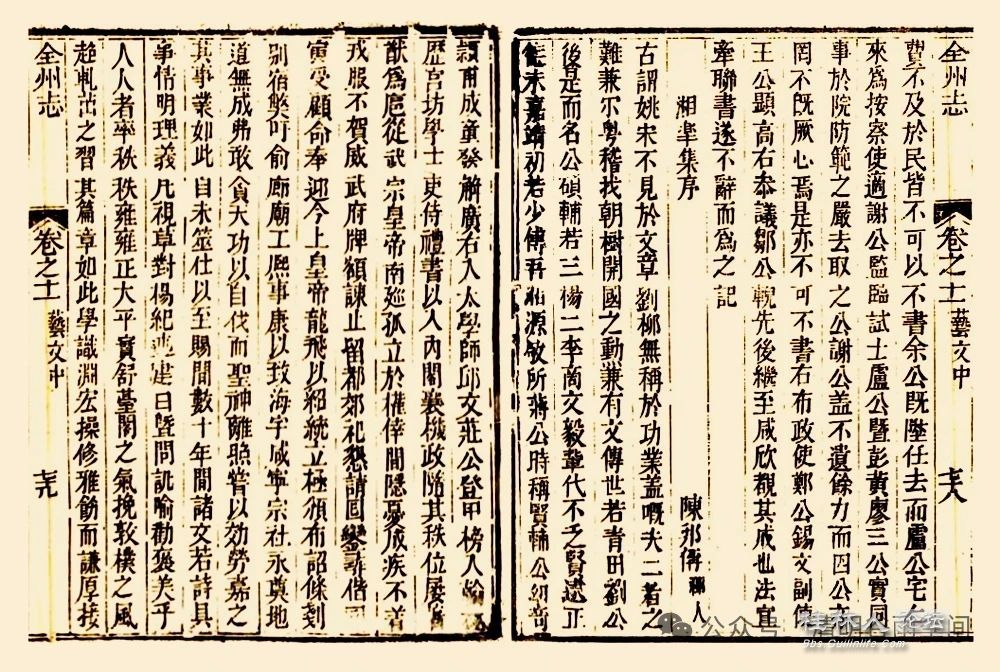 全州志 卷之十一 藝文中 七十八
費不及於民皆不可以不書余公既陞任去而盧公宅
來為按察使適謝公監臨試士盧公暨彭黃廖三公實同
事於院防範之嚴去取之公謝公盖不遺餘力而四公亦
罔不既厥心焉是亦不可不書右布政使鄭公錫文副使
王公顯高右叅議鄒公輗先後繼至咸欣觀其成也法宜
牽聯書遂不辭而為之記
湘臯集序 陳邦偁 鄉人
古謂姚宋不見於文章劉柳無稱於功業盖嘅夫二者之
難兼尔粤稽我朝樹開國之勳兼有文傳世若青田劉公
後是而名公碩輔若三楊二李商文毅輩代不乏賢迨正
德末嘉靖初若少傅吾湘源敬所蔣公時稱賢輔公幼奇
穎甫成童發解廣右入太學師邱文莊公登甲榜入翰
歷宮坊學士吏侍禮書以入內閣襄機政隨其秩位屢
猷為扈從武宗皇帝南廵孤立於權倖間隱憂成疾不著
戎服不賀威武府牌額諫止留都郊祀懇請囘鑾偕同
寅受顧命奉迎今上皇帝龍飛以紹統立極頒布詔條剗
别宿獘吁俞廊廟工熙事康以致海宇咸寧宗社永奠地
道無成弗敢貪天功以自伐而聖神離照簮以効勞嘉之
其事業如此自未筮仕以至賜閒數十年間諸文若詩具
事情明理義凡視草對揚紀述建白暨問訊喻勸褒美乎
人人者率秩秩雍雍正大平實舒臺閣之氣挽敦樸之風
趂軋茁之習其篇章如此學識淵宏操修雅飭而謙厚接
全州志 卷之十一 藝文中 七十九
公众号
桂林人论坛
Bbs.Guilinlife.Com